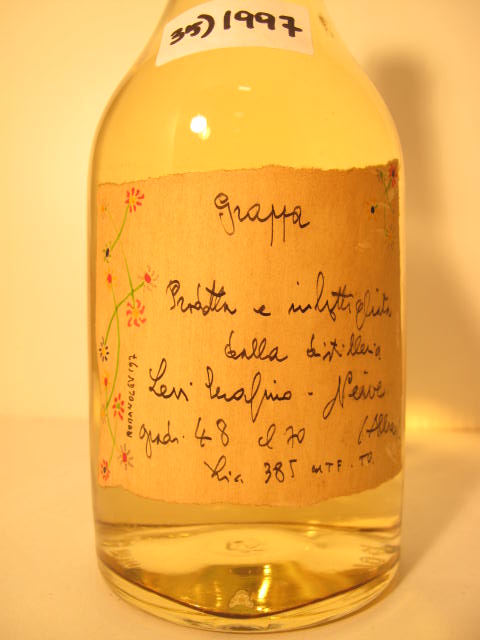 35) 1997
Grappa
Prodotta e imbottigliata
dalla distilleria
Levi Serafino - Neive
gradi. 48 cl 70 (Alba
Lic. 385 UTF. TO.
ROMANO LEVI 97